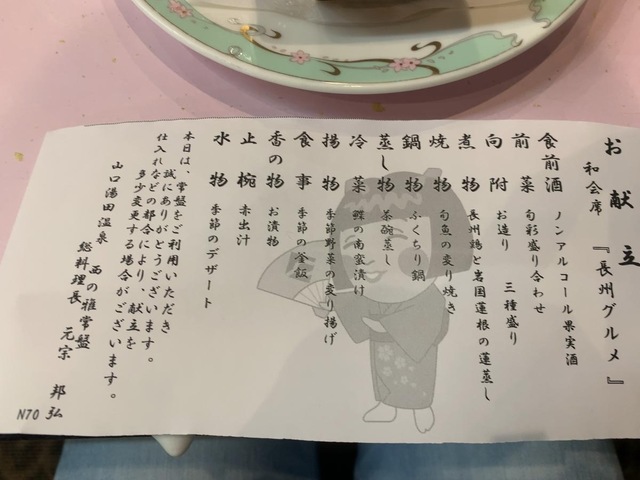 お献立
和会席 『長州グルメ』
食前酒 ノンアルコール果実酒
前菜 旬彩盛り合わせ
向附 お造り 三種盛り
煮物 長州鶏と岩国蓮根の蓮蒸し
焼物 旬魚の変り焼き
鍋物 ふくちり鍋
蒸し物 茶碗蒸し
冷菜 鰈の南蛮漬け
揚物 季節野菜の変り揚げ
食事 季節の釜飯
香の物 お漬物
止椀 赤出汁
水物 季節のデザート
本日は、常盤をご利用いただき
誠にありがとうございます。
仕入れなどの都合により、献立を
多少変更する場合がございます。
山口湯田温泉 西の雅常盤
総料理長 元宗 邦弘
N70